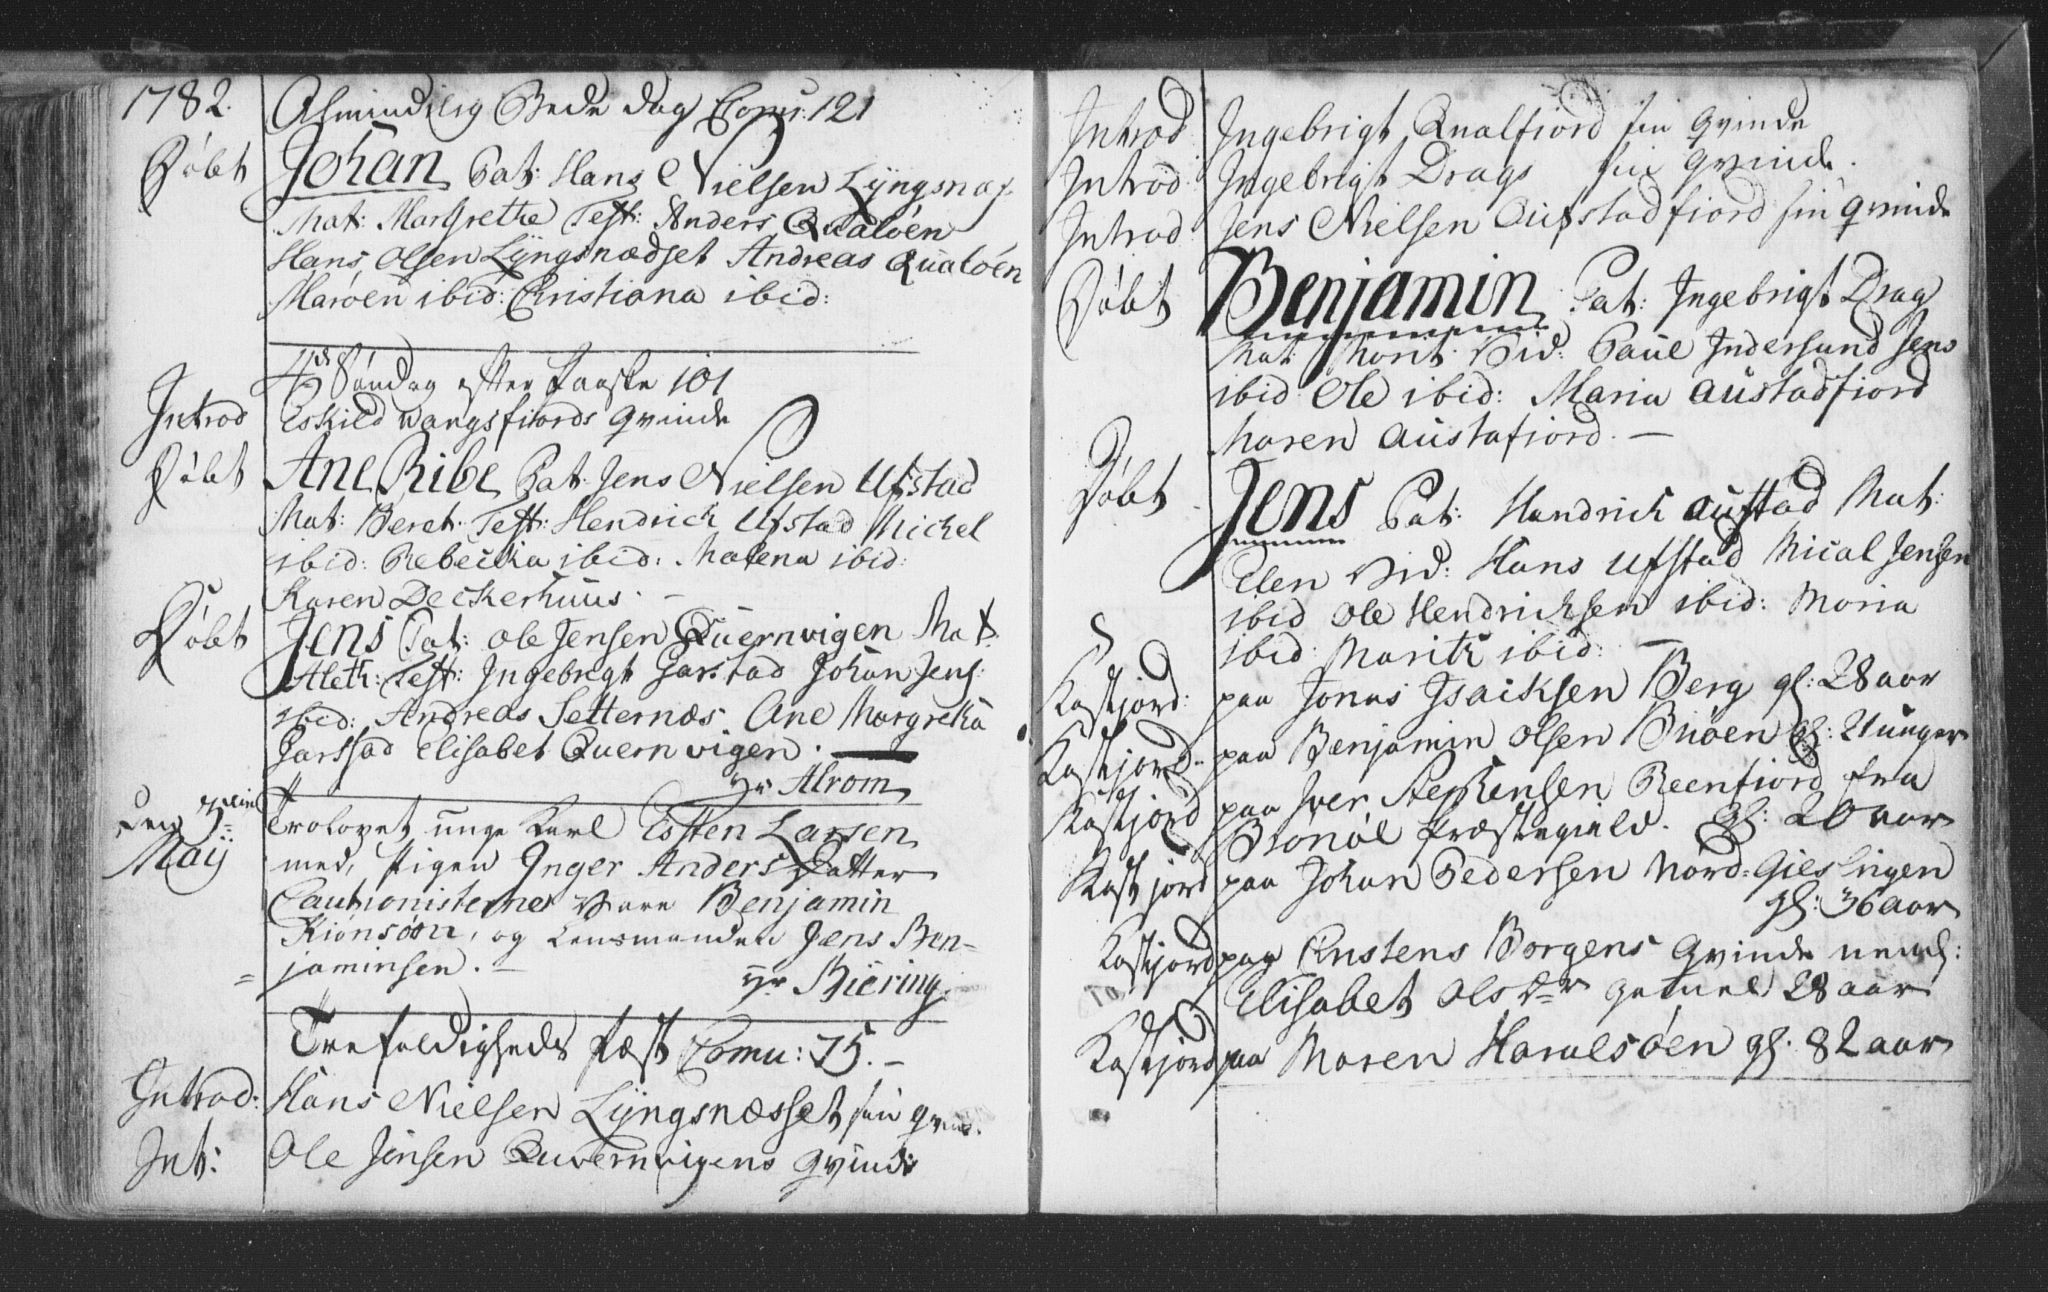 1782. Almindelig Bede dag Comu: 121
Døbt Johan Pat: Hans Nielsen Lyngsnæs.
Mat: Margrethe Test: Anders Qualøen
Hans Olsen Lyngsnædset Andreas Qualöen
Maroen ibid: Christiana ibid:
4de Søndag efter Paaske 101
Introd Eskild Vangsfiords Qvinde
Døbt Ane Ribe Pat: Jens Nielsen Ufstad
Mat: Beret: Test: Hendrich Ufstad Michel
ibid: Rebecka ibid: Malena ibid:
Karen Deckerhuus. —
Døbt Jens Pat: Ole Jensen Quernvigen Mat:
Aleth: Test: Ingebrigt Garstad Johan Jens:
ibid: Andreas Setternæs Ane Margreta
Garstad Elisabet Quernvigen. —
Hr Alrom
Den 3die Trolovet unge Karl Esten Larsen
Maij med, Pigen Inger Anders Datter
Cautionisterne vare Benjamin
Kiönsöen, og Lensmanden Jens Ben-
= jaminsen. — Hr Biering.
Trefoldigheds Fæst Comu: 75. —
Introd: Hans Nielsen Lyngsnæsset sin Qvind.
Int: Ole Jensen Quvernvigens Qvinde
Introd Ingebrigt Qualfiord sin Qvinde
Introd: Ingebrigt Drags sin Qvinde.
Introd: Jens Nielsen Aufstadfiord sin Qvinde
Døbt Benjamin Pat: Ingebrigt Drag
Mat: Morit Vid: Paul Indersund Jens
ibid Ole ibid: Maria Austadfiord
Maren Austafiord. —
Døbt Jens Pat: Handrich Austad Mat:
Elen Vid: Hans Ufstad Mical Jensen
ibid Ole Hendrichsen ibid: Maria
ibid: Marith ibid: —
Kastjord: paa Jonas Isaiksen Berg gl: 28 aar
Kastjord paa Benjamin Olsen Buöen gl: 21 uuger
Kastjord paa Iver Steffensen Reenfiord fra
Brønøe Præstegield. gl: 20 aar
Kastjord paa Johan Pedersen Nord=Gieslingen
gl: 36 aar
Kastjord paa Christens Borgens Qvinde nemlg:
Elisabet Olsdr gamel 28 aar
Kastjord paa Maren Haralsöen gl: 82 aar